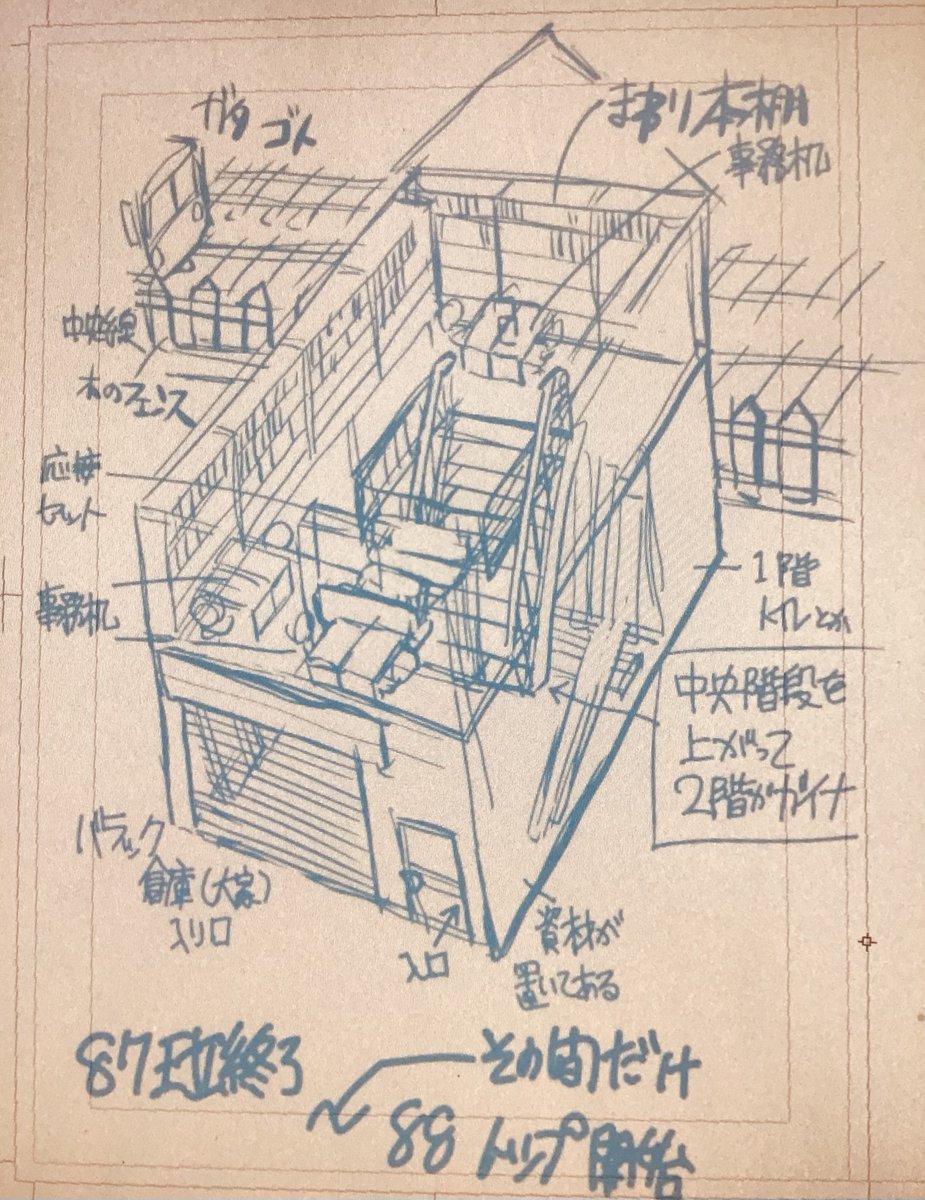 ガタ
ゴト
まわり本棚
事務机
中央線
木のフェンス
応接
セット
事務机
1階
トイレとか
中央階段を
上がって
2階がガイナ
バラック
倉庫(大家)
入り口
入口
資材が
置いてある
87王立終了
その間だけ
〜
88 トップ開始